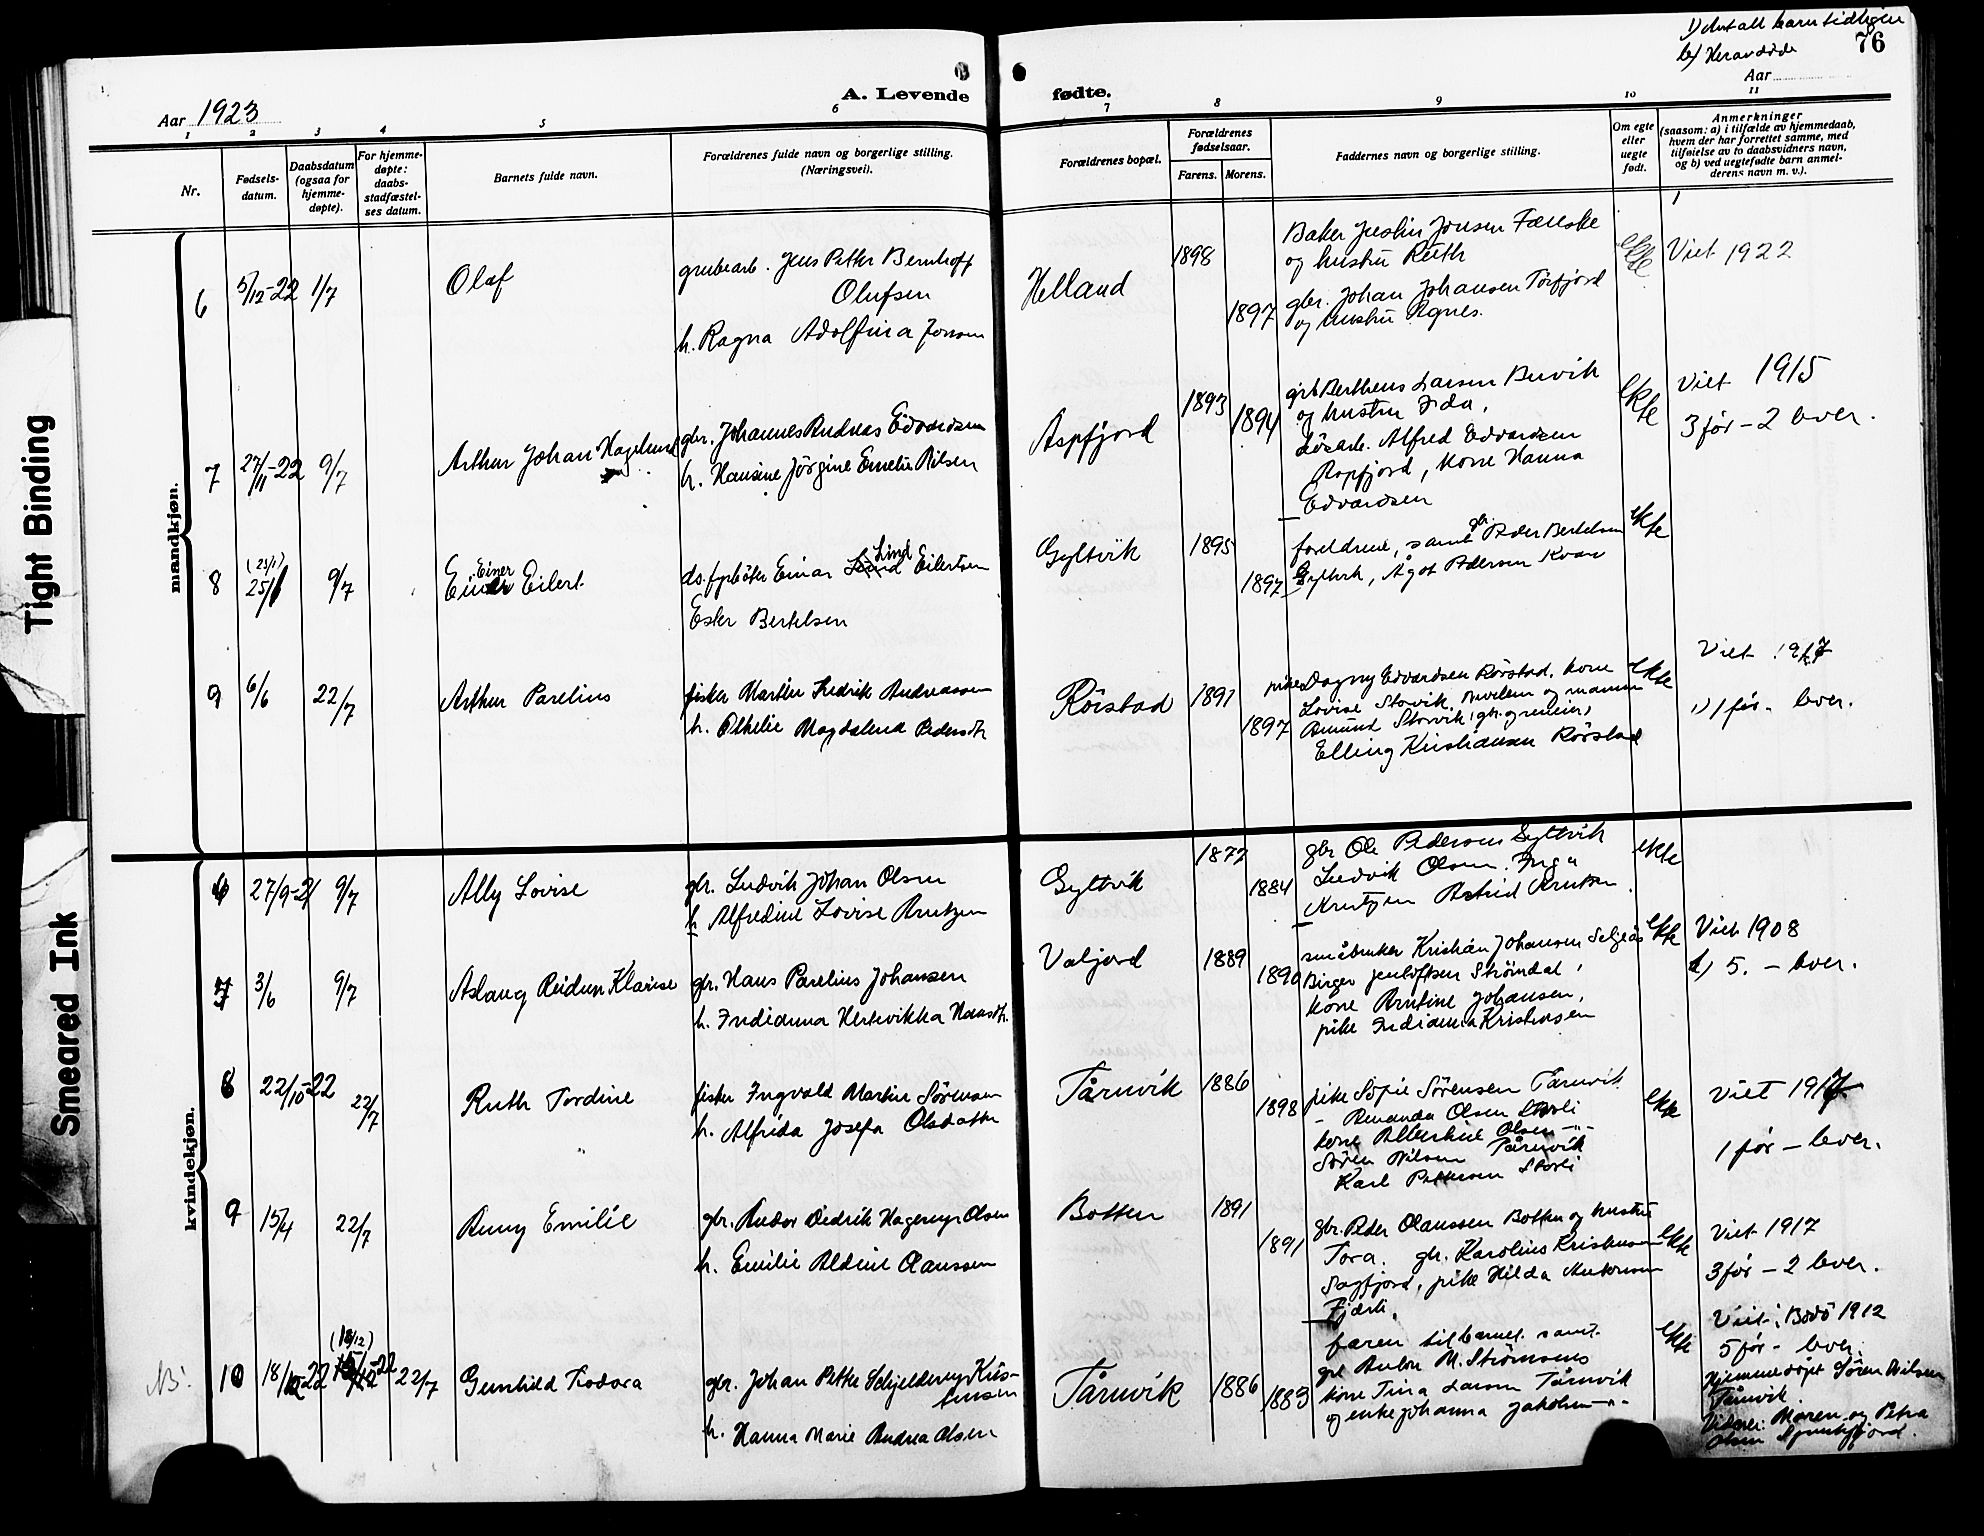 1) Antall barn tidligere
2) Herav døde
76
Aar
Aar 1923
A. Levende fødte.
1 2 3 4 5 6 7 8 9 10 11
Nr.
Fødsels-
datum.
Daabsdatum
(ogsaa for
hjemme-
døpte).
For hjemme-
døpte:
daabs-
stadfæstel-
ses datum.
Barnets fulde navn.
Forældrenes fulde navn og borgerlige stilling.
(Næringsvei).
Forældrenes bopæl.
Forældrenes
fødselsaar.
Farens. Morens.
Faddernes navn og borgerlige stilling.
Om egte
eller
uegte
født.
Anmerkninger
(saasom: a) i tilfælde av hjemmedaab,
hvem der har forrettet samme, med
tilføielse av to daabsvidners navn,
og b) ved uegtefødte barn anmel-
derens navn m. v.).
Tight Binding
Smeared Ink
mandkjøn.
6 5/12-22 1/7 Olaf
grubearb. Jens Petter Bernhoff
Olufsen
h. Ragna Adolfina Jonsen
Helland 1898 1897
Baker Justin Jonsen Fauske
og hustru Ruth
gbr. Johan Johansen Torfjord
og hustru Agnes.
ekte
Viet 1922
7 27/11-22 9/7 Arthur Johan Hagelund
gbr. Johannes Andreas Edvardsen
h. Hansine Jørgine Emelie Nilsen
Aspfjord 1893 1894
gbr Bertheus Larsen Bervik
og hustru Ida,
Løsarb. Alfred Edvardsen
Aspfjord, kone Hanna
Edvardsen
ekte
Viet 1915
3 før - 2 lever.
8 (25/1) 25/1 9/7 Einer Eilert
ds. fyrbøter Einar Lind Eilertsen
Ester Bertelsen
Gyltvik 1895 1897
foreldrene, samt gbr Peder Bertelsen
Gyltvik, Ågot Pedersen Kvar
ekte
9 6/6 22/7 Arthur Parelius
fisker Martin Fredrik Andreassen
h. Othelie Magdalena Pedersdtr
Rørstad 1891 1897
pike Dagny Edvardsen Rørstad, kone
Lovise Storvik, og mannen
Amund Storvik (gbr. grenen)
Elling Kristiansen Rørstad
ekte
Viet 1917
1) 1 før - lever.
kvindekjøn.
6 27/9-21 9/7 Ally Lovise
gbr. Ludvik Johan Olsen
h Alfredine Lovise Arntzen
Gyltvik 1877 1884
gbr Ole Pedersen Gyltvik
Ludvik Olsen. Inga
Arntzen Astrid Arntzen
ekte
7 3/6 9/7 Aslaug Reidun Klarise
gbr. Hans Parelius Johansen
h. Indianna Hertevikka Hansdtr.
Valjord 1889 1890
småbruker Kristian Johansen Seljeås
Birger Jentoftsen Strømdal,
kone Arntine Johansen,
pike Indianna Kristensen
ekte
Viet 1908
1) 5. - lever.
8 22/10-22 22/7 Ruth Tordine
fisker Ingvald Martin Sørensen
h. Alfrida Josefa Olsdatter
Tårnvik 1886 1898
pike Sofie Sørensen Tårnvik
- Amanda Olsen Storli
kone Albertine Olsen -"-
Søren Nilsen Tårnvik
Karl Pettersen Storli
ekte
Viet 1917
1 før - lever.
9 15/4 22/7 Anny Emilie
gbr. Andor Diedrik Hagerup Olsen
h. Emilie Aldine Olaussen
Botten 1891 1891
gbr. Peder Olaussen Botten og hustru
Tora. gbr. Karolius Kristensen
Sagfjord, pike Hilda Antonsen
Fjærli.
ekte
Viet 1917
3 før - 2 lever.
NB! 10 18/10-22 (18/12) 22/7 Gunhild Teodora
gbr. Johan Petter Schjelderup Kris-
tensen
h. Hanna Marie Andrea Olsen
Tårnvik 1886 1883
faren til barnet. samt.
gbr Anton M. Strømsnes
kone Tina Larsen Tårnvik
og enke Johanna Jakobsen -"-
ekte
Viet i Bodø 1912
5 før - lever.
Hjemmedøpt Søren Nilsen
Tårnvik
Vidner: Maren og Petra
Olsen